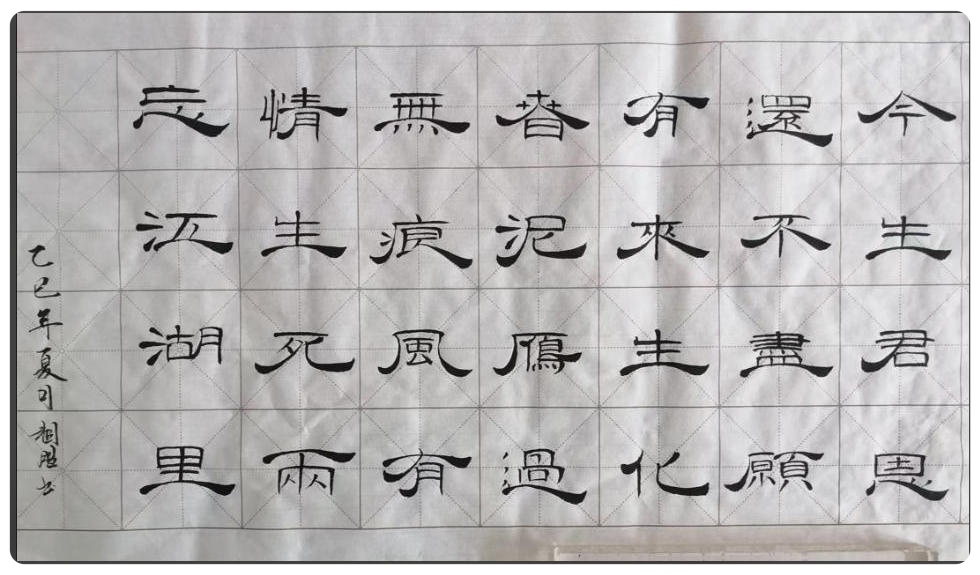 今生君恩
還不盡願
有來生化
春泥鴈過
無痕風有
情生死兩
忘江湖里
乙巳年夏月